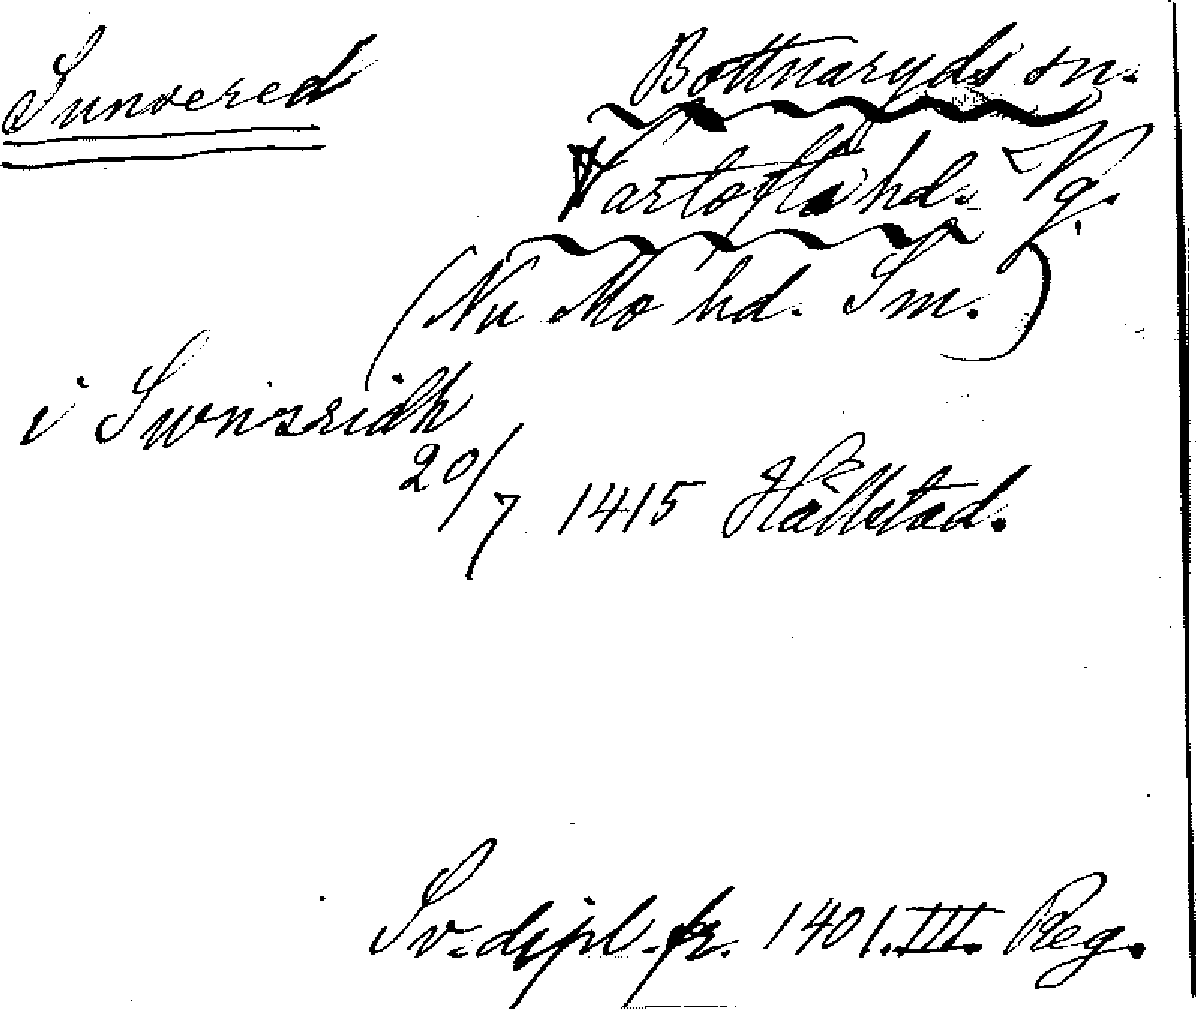 Sunsered Bottnaryds sn.
Vartofta hd. Vg.
(Nu Mo hd. Sm.)
i Swnsridh
20/7 1415 Hällstad.
Sv. dipl. fr. 1401. III. Reg.